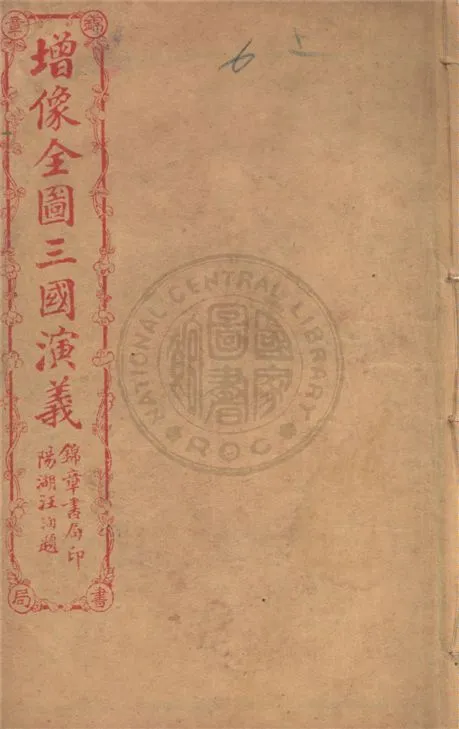 增像全圖三國演義
錦章書局印
陽湖汪洵題
錦章
書局
6
NATIONAL CENTRAL LIBRARY
ROC
國家圖書館